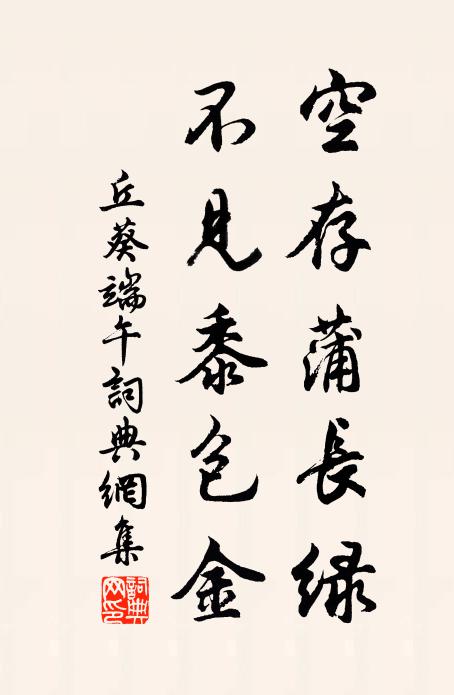 空存蒲長緑
不見黍包金
丘葵端午詞典網集
詞典网印